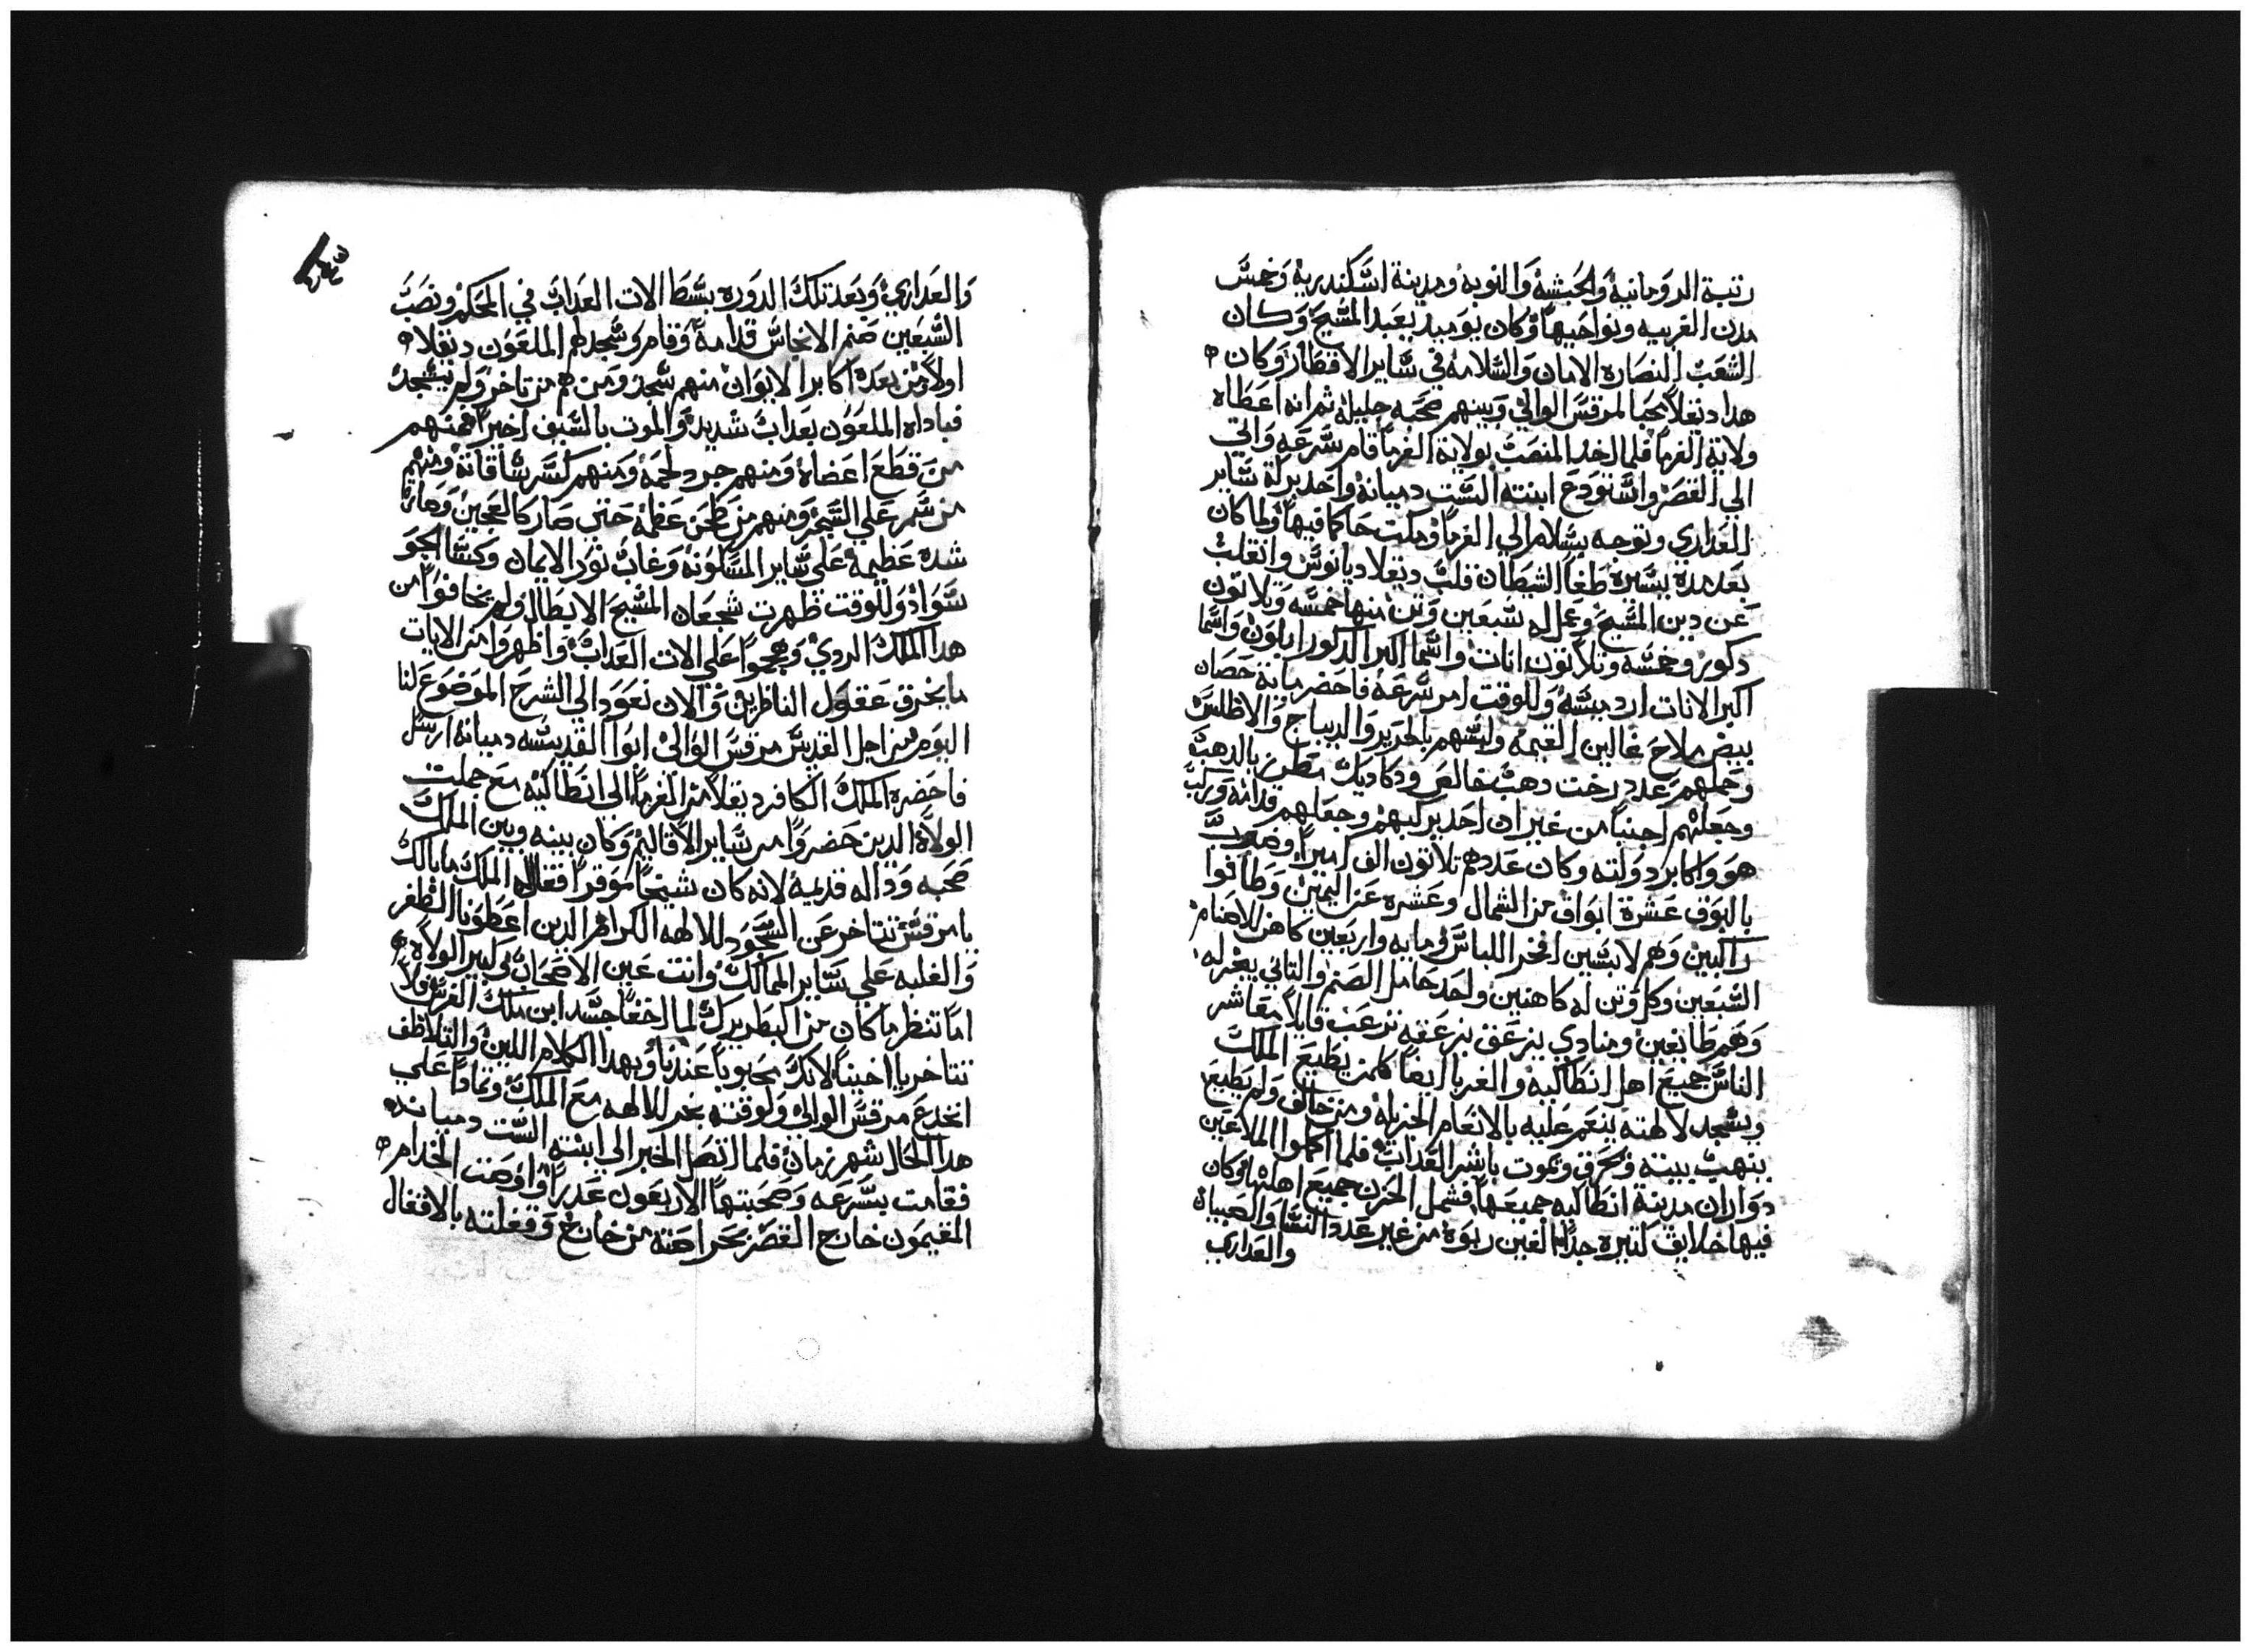 رتبة الرومانيه والحبشه والنوبه ومدينة اسكندريه وخمس
مدن الغربيه ونواحيها وكان يوميد يعبد المسيح وكان
الشعب النصاره الامان والسلامه في ساير الاقطار وكان
هدا دقلا محبا لمرقس الوالي وبينهم صحبه جليله ثم انه اعطاه
ولاية الفرما فلما اخد المنصب بولاية الفرما قام بسرعه واتي
الي القصر واستودع ابنته الست دميانه واخد بركة ساير
العداري وتوجه بسلام الي الفرما ومكت حاكما فيها ولما كان
بعد مده يسيره طغا الشيطان قلب دقلاديانوس وانقلب
عن دين المسيح وعمل له سبعين وتن منها خمسه وتلاتون
دكور وخمسه وتلاتون انات واسما اكبر الدكور ابلون واسما
اكبر الانات اردميسه وللوقت امر بسرعه فاحضر ماية حصان
بيض ملاح غالين القيمه ولبسهم بالحرير والديباج والاطلس
وحملهم عدد رخت دهب خالص ودكاديك مطرز بالدهب
وجعلهم اجنبيا من غير ان احد يركبهم وجعلهم قدامه وركب
هو واكابر دولته وكان عددهم تلاتون الف اميرا وضرب
بالبوق عشرة ابواق من الشمال وعشره عن اليمين وطافوا
راكبين وهم لابسين افخر اللباس ومايه واربعين كاهن للاصنام
السبعين وكل وتن له كاهنين واحد حامل الصنم والتاني يبخر له
وهم طايفين ومنادي يزعق بزعقه ترعب قايلا معاشر
الناس جميع اهل انطاكيه والغربا ايضا كلمن يطيع الملك
ويسجد لالهته ينعم عليه بالانعام الجزيله ومن خالف ولم يطيع
ينهب بيته ويحرق ويموت باشر العداب فلما اكملوا الملاعين
دواران مدينة انطاكيه جميعها فشمل الحزن جميع اهلها وكان
فيها خلايق كتيره جدا الفين ربوه من غير عدد النسا والصبيان
والعداري
والعداري وبعد تلك الدوره بسط الات العداب في المحكم ونصب
السبعين صنم الانجاس قدامه وقام وسجد لهم الملعون دقلا
اولا ومن بعده اكابر الايوان منهم سجد ومن هم من تاخر ولم يسجد
فباداه الملعون بعداب شديد والموت بالسيف اخيرا فمنهم
من قطع اعضاه ومنهم جرد لحمه ومنهم كسر ساقاته ومنهم
من سمر علي الشجر ومنهم من طحن عظمه حتي صار كالعجين وصارة
شده عظيمه علي ساير المسكونه وغاب نور الايمان وكسا الجو
سواد وللوقت ظهرت شجعان المسيح الابطال ولم يخافوا من
هدا الملك الردي وهجموا علي الات العداب واظهروا من الايات
ما يخرق عقول الناظرين والان نعود الي الشرح الموضوع لنا
اليوم من اجل القديس مرقس الوالي ابوا القديسه دميانه ارسل
فاحضره الملك الكافر دقلا من الفرما الي انطاكيه مع جملت
الولاة الدين حضروا من ساير الاقاليم وكان بينه وبين الملك
صحبه وداله قديمه لانه كان شيخا موقرا فقال له الملك ما بالك
يا مرقس تتاخر عن السجود للالهه الكرام الدين اعطونا الظفر
والغلبه علي ساير الممالك وانت عين الاصحاب في كبير الولاه
اما تنظر ما كان من البطريرك لما اخفا جسد ابن ملك الفرس فلا
تتاخر يا اخينا لانك محبوبا عندنا وبهدا الكلام اللين والتلاطف
انخدع مرقس الوالي ولوقته بخر للالهه مع الملك وتمادا علي
هدا الحال شهر زمان فلما اتصل الخبر الي ابنته الست دميانه
فقامت بسرعه وصحبتها الاربعون عدرا واوصت الخدام
المقيمون خارج القصر بحراصته من خارج وقفلته بالاقفال